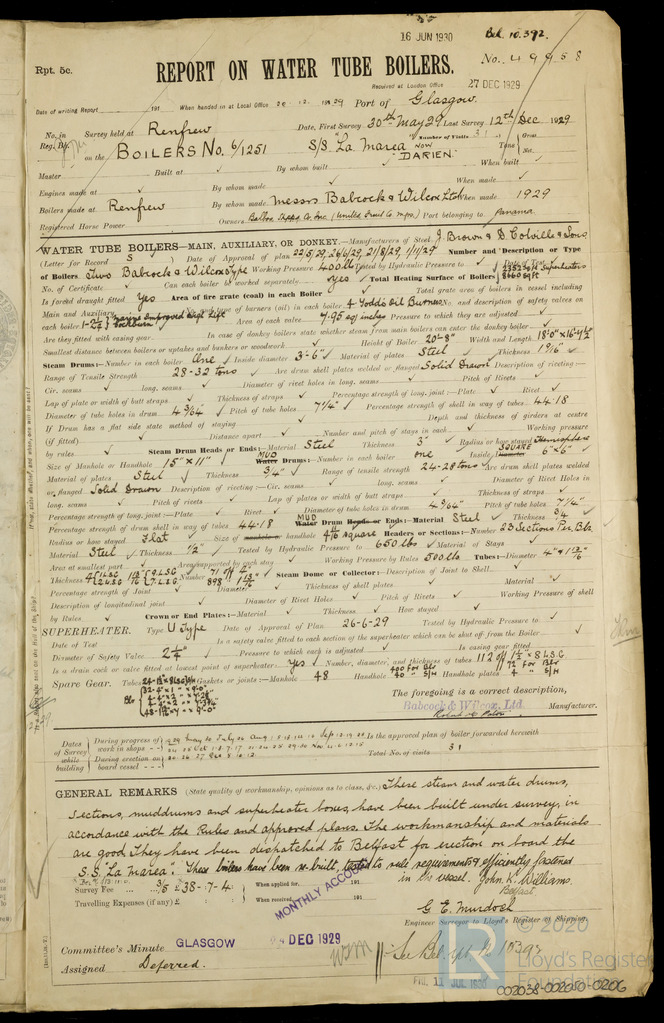 16 JUN 1930 Bel. 10.392.
Rpt. 5c. No. 49958
REPORT ON WATER TUBE BOILERS.
Received at London Office 27 DEC 1929
Date of writing Report 191 When handed in at Local Office 20.12.1929 Port of Glasgow.
No. in Survey held at Renfrew Date, First Survey 30th May 29 Last Survey 12th Dec 1929
Reg. Bk. (Number of Visits 31)
on the BOILERS No. 6/1251 S/S La Marea NOW "DARIEN" Tons Gross Net
Master Built at By whom built When built
Engines made at By whom made When made
Boilers made at Renfrew By whom made Messrs Babcock & Wilcox Ltd When made 1929
Registered Horse Power Owners Balboa Shipp. Co. Inc. (United Fruit Co) Port belonging to Panama
WATER TUBE BOILERS—MAIN, AUXILIARY, OR DONKEY.—Manufacturers of Steel J. Brown & D. Colville & Sons
(Letter for Record S) Date of Approval of plan 22/5/29, 26/6/29, 21/8/29, 1/11/29 Number and Description or Type
of Boilers Two Babcock & Wilcox Type Working Pressure 400 lb Tested by Hydraulic Pressure to Date of Test
No. of Certificate Can each boiler be worked separately yes Total Heating Surface of Boilers
Is forced draught fitted Yes Area of fire grate (coal) in each Boiler Total grate area of boilers in vessel including
Main and Auxiliary No. and type of burners (oil) in each boiler 4 Todd's Oil Burners No. and description of safety valves on
each boiler Area of each valve 7.95 sq inches Pressure to which they are adjusted
Are they fitted with easing gear In case of donkey boilers state whether steam from main boilers can enter the donkey boiler
Smallest distance between boilers or uptakes and bunkers or woodwork Height of Boiler 20'-8" Width and Length 18'-0" x 16'-4 1/2"
Steam Drums:—Number in each boiler One Inside diameter 3'-6" Material of plates Steel Thickness 1 9/16
Range of Tensile Strength 28-32 tons Are drum shell plates welded or flanged Solid Drawn Description of riveting:—
Cir. seams long. seams Diameter of rivet holes in long. seams Pitch of Rivets
Lap of plate or width of butt straps Thickness of straps Percentage strength of long. joint:—Plate Rivet
Diameter of tube holes in drum 4 3/64" Pitch of tube holes 7 1/4" Percentage strength of shell in way of tubes 44.18
If Drum has a flat side state method of staying Depth and thickness of girders at centre
(if fitted) Distance apart Number and pitch of stays in each Working pressure
by rules Steam Drum Heads or Ends:—Material Steel Thickness 3/4" Radius or how stayed Hemisphere
Size of Manhole or Handhole 15" x 11" MUD Water Drums:—Number in each boiler one Inside SQUARE Diameter 6" x 6"
Material of plates Steel Thickness 3/4" Range of tensile strength 24-28 tons Are drum shell plates welded
or flanged Solid Drawn Description of riveting:—Cir. seams long. seams Diameter of Rivet Holes in
long. seams Pitch of rivets Lap of plates or width of butt straps Thickness of straps
Percentage strength of long. joint:—Plate Rivet Diameter of tube holes in drum 4 3/64" Pitch of tube holes 7 1/4"
Percentage strength of drum shell in way of tubes 44.18 MUD Water Drum Heads or Ends:—Material Steel Thickness 3/4
Radius or how stayed Flat Size of manhole or handhole square Headers or Sections:—Number 23 Sections Per. Blr.
Material Steel Thickness 1/2" Tested by Hydraulic Pressure to 650 lbs Material of Stays
Area at smallest part Area supported by each stay Working Pressure by Rules 500 lbs Tubes:—Diameter 4" & 1 13/16
Thickness Number Steam Dome or Collector:—Description of Joint to Shell
Percentage strength of Joint Diameter Thickness of shell plates Material
Description of longitudinal joint Diameter of Rivet Holes Pitch of Rivets Working Pressure of shell
by Rules Crown or End Plates:—Material Thickness How stayed
SUPERHEATER. Type U Type Date of Approval of Plan 26-6-29 Tested by Hydraulic Pressure to
Date of Test Is a safety valve fitted to each section of the superheater which can be shut off from the Boiler
Diameter of Safety Valve 2 1/4" Pressure to which each is adjusted Is easing gear fitted
Is a drain cock or valve fitted at lowest point of superheater Yes Number, diameter, and thickness of tubes 112 off 1 1/2" x 8 L.S.G
Spare Gear. Tubes Gaskets or joints:—Manhole 48 Handhole 400 For Blr 40 " S/H Handhole plates 72 For Blr 4 " S/H
The foregoing is a correct description,
Babcock & Wilcox, Ltd. Manufacturer.
Dates of Survey while building
During progress of work in shops
During erection on board vessel
Is the approved plan of boiler forwarded herewith
Total No. of visits 31
GENERAL REMARKS (State quality of workmanship, opinions as to class, &c.) These steam and water drums,
sections, muddrums and superheater boxes, have been built under survey, in
accordance with the Rules and approved plans. The workmanship and materials
are good. They have been dispatched to Belfast for erection on board the
S.S. "La Marea". These boilers have been re-built, tested to rule requirements & efficiently fastened
in the vessel. John W. Williams.
Belfast
Survey Fee £38-7-4 When applied for, 191
MONTHLY ACCOUNT
Travelling Expenses (if any) £ When received, 191
G. E. Murdoch
Engineer Surveyor to Lloyd's Register of Shipping.
Committee's Minute GLASGOW 24 DEC 1929
Assigned Deferred.
See Bel. rpt. No 10392
FRI. 11 JUL 1930
© 2020
LR
Lloyd's Register
Foundation
002038-002050-0206